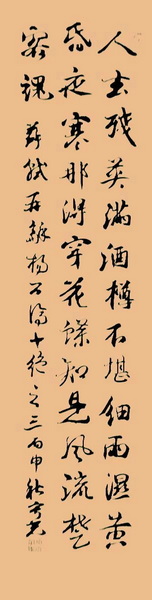 人去残英满酒樽不堪细雨湿黄
昏夜寒那得穿花蝶知是风流楚
客魂 苏轼再和杨公济十绝之三丙申秋